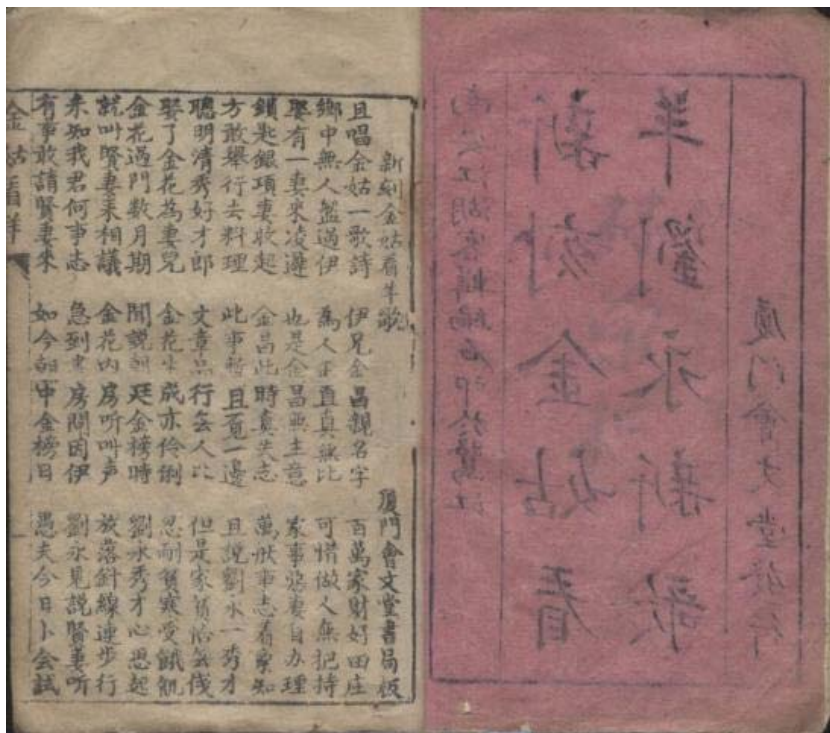 南安江湖客輯編石印於鷺江
新刻金姑看
羊劉永新歌
廈門會文堂發行
新刻金姑看羊歌 廈門會文堂書局板
且唱金姑一歌詩 伊兄金昌親名字 百萬家財好田庄
鄉中無人盤過伊 為人正直真無比 可惜做人無把持
娶有一妻來凌遲 也是金昌無主意 家事惡妻自办理
鎖匙銀項妻收起 金昌此時意失志 萬般事志看象知
方敢舉行去料理 此事暫且覓一邊 且說劉永一秀才
聰明清秀好才郎 文章品行無人比 但是家貧恰無伐
娶了金花為妻兒 金花生成亦伶俐 忍耐貧寒受餓飢
金花過門數月期 聞說朝廷金榜時 劉永秀才心思起
就叫賢妻來相議 金花內房听叫声 放落針線連步行
未知我君何事志 急到書房問因伊 劉永見說賢妻听
有事敢請賢妻來 如今朝中金榜日 愚夫今日卜会試
金姑看羊